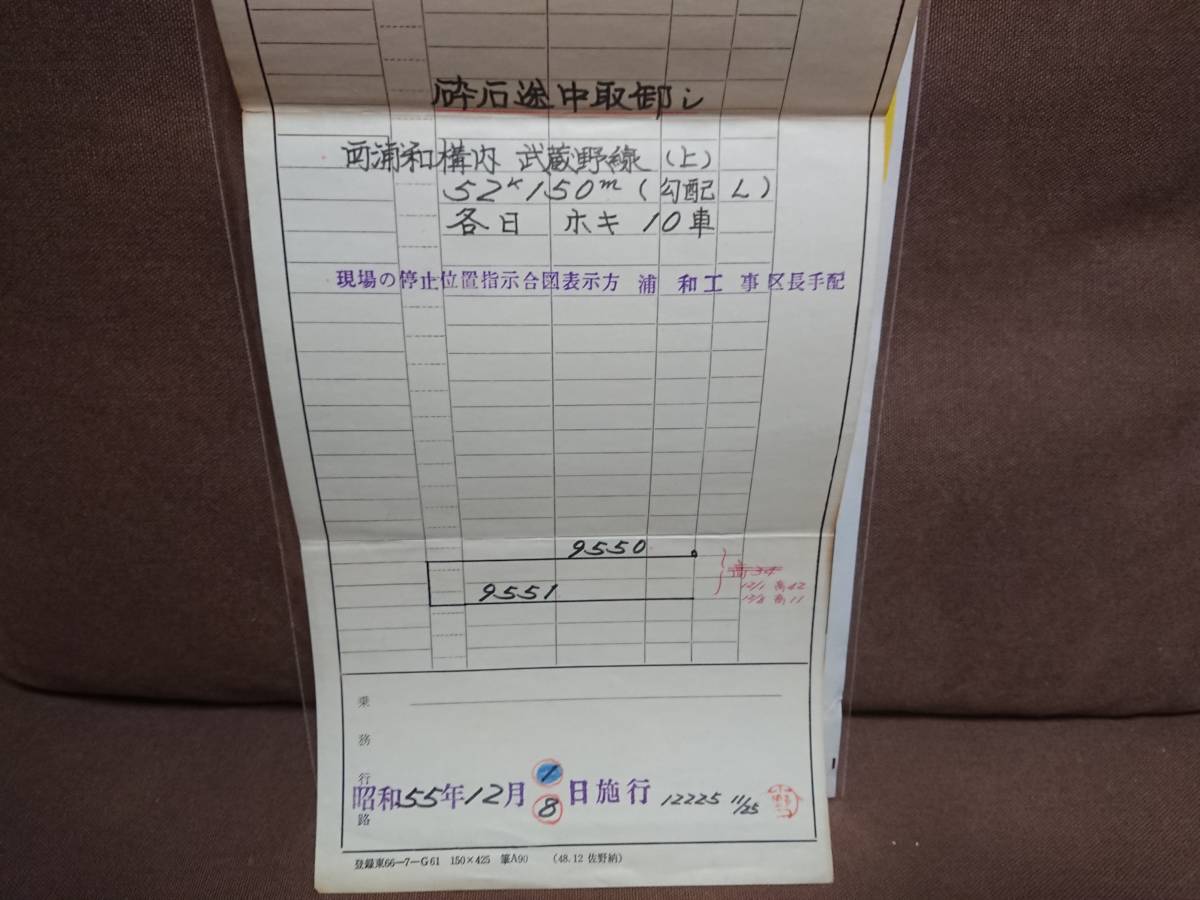 砕石途中取卸し
西浦和構内 武蔵野線(上)
52K150m(勾配 L)
各日 ホキ 10車
現場の停止位置指示合図表示方 浦和工事区長手配
9550
9551
高34
12/1 高42
12/8 高11
乗務行路
昭和55年12月1 8日施行 12225 11/25
登録東66-7-G61 150×425 筆A90 (48.12 佐野納)